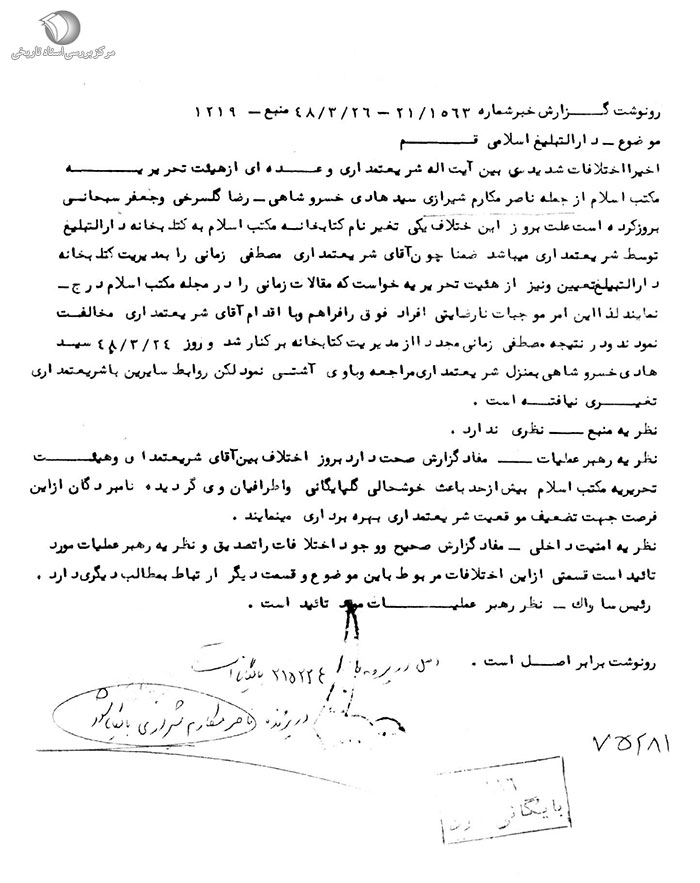 مرکز بررسی اسناد تاریخی
رونوشت گزارش خبرشماره ۲۱/۱۵۶۳ – ۴۸/۳/۲۶ منبع – ۱۲۱۹
موضوع – دارالتبلیغ اسلامی قم
اخیرا اختلافات شدیدی بین آیت اله شریعتمداری وعده ای ازهیئت تحریریه
مکتب اسلام از جمله ناصر مکارم شیرازی سید هادی خسروشاهی – رضا گلسرخی وجعفر سبحانی
بروزکرده است علت بروز این ختلاف یکی تغیر نام کتابخانه مکتب اسلام به کتابخانه دارالتبلیغ
توسط شریعتمداری میباشد ضمنا چون آقای شریعتمداری مصطفی زمانی را بمدیریت کتابخانه
دارالتبلیغ تعیین ونیز از هئیت تحریریه خواست که مقالات زمانی را در مجله مکتب اسلام درج –
نمایند لذا این امر موجبات نارضایتی افراد فوق رافراهم وبا اقدام آقای شریعتمداری مخالفت
نمودند ودر نتیجه مصطفی زمانی مجددا از مدیریت کتابخانه برکنار شد و روز ۴۸/۳/۲۴ سید
هادی خسروشاهی بمنزل شریعتمداری مراجعه وباوی آشتی نمود لکن روابط سایرین باشریعتمداری
تغییری نیافته است .
نظریه منبع – نظری ندارد .
نظریه رهبرعملیات – مفاد گزارش صحت دارد بروز اختلاف بین آقای شریعتمد ا ی وهیئت
تحریریه مکتب اسلام بیش ازحد باعث خوشحالی گلپایگانی واطرافیان وی گردیده نامبردگان ازاین
فرصت جهت تضعیف موقعیت شریعتمداری بهره برداری مینمایند .
نظریه امنیت داخلی – مفاد گزارش صحیح ووجود اختلافات راتصدیق و نظریه رهبرعملیات مورد
تائید است قسمتی ازاین اختلافات مربوط باین موضوع و قسمت دیگر ارتباط بمطالب دیگری دارد .
رئیس ساواك – نظر رهبر عملیات مورد تائید است .
رونوشت برابر اصل است .
اصل در پرونده ۲۱۵۲۲۴ بایگانی است
در پرونده ناصر مکارم شیرازی بایگانی شود
۷۵۲۸۱
بایگانی